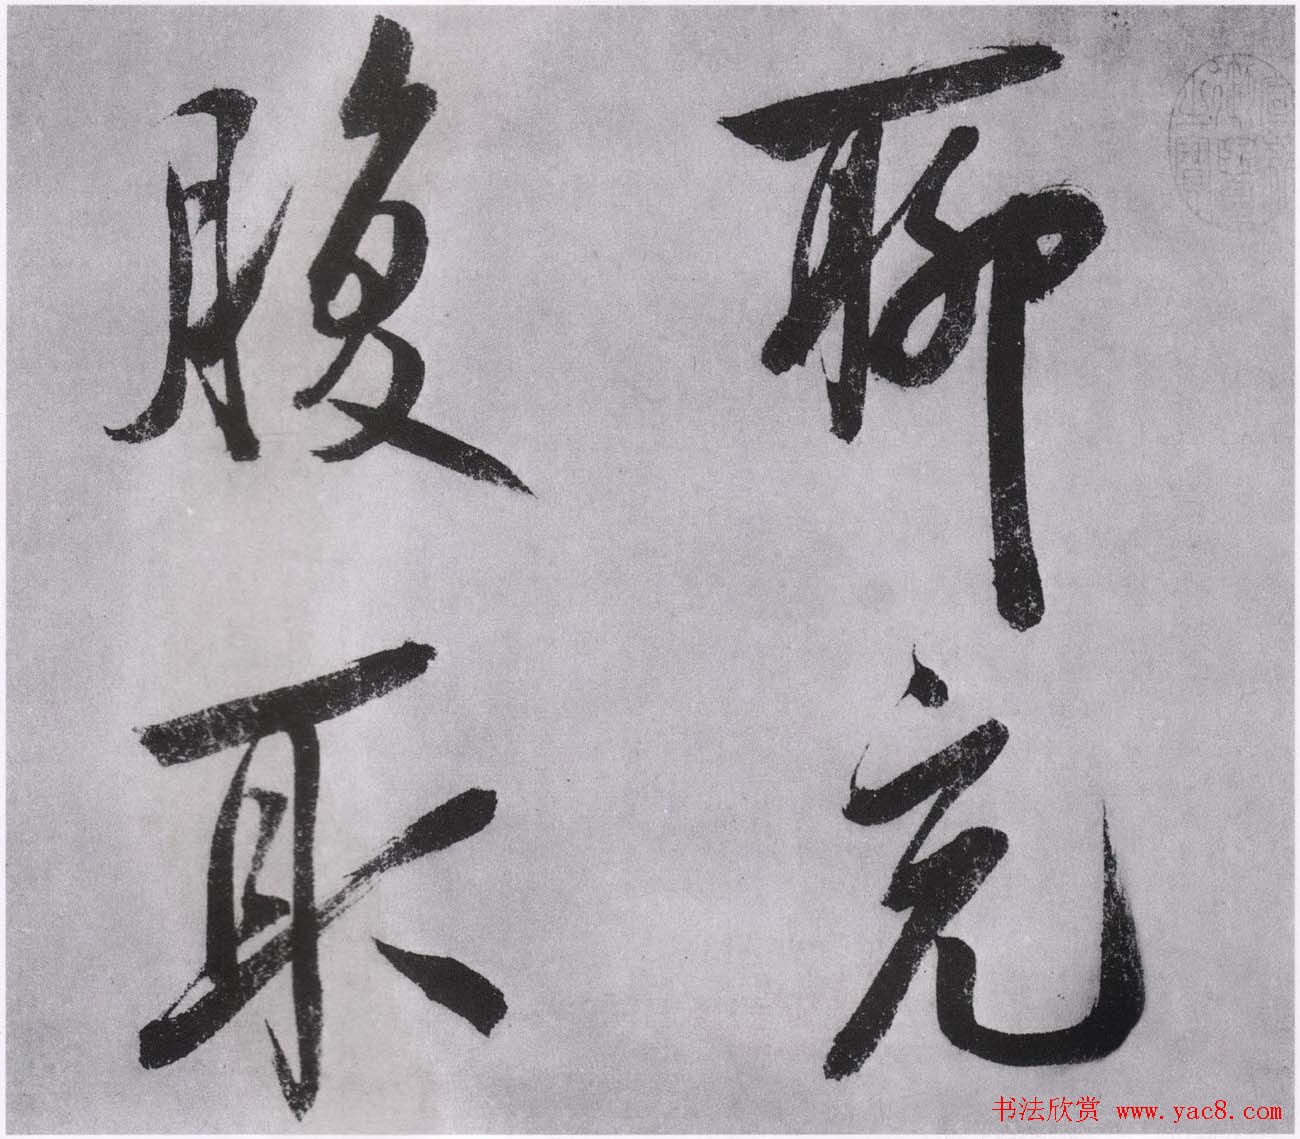 聊充
腹取
书法欣赏 www.yac8.com